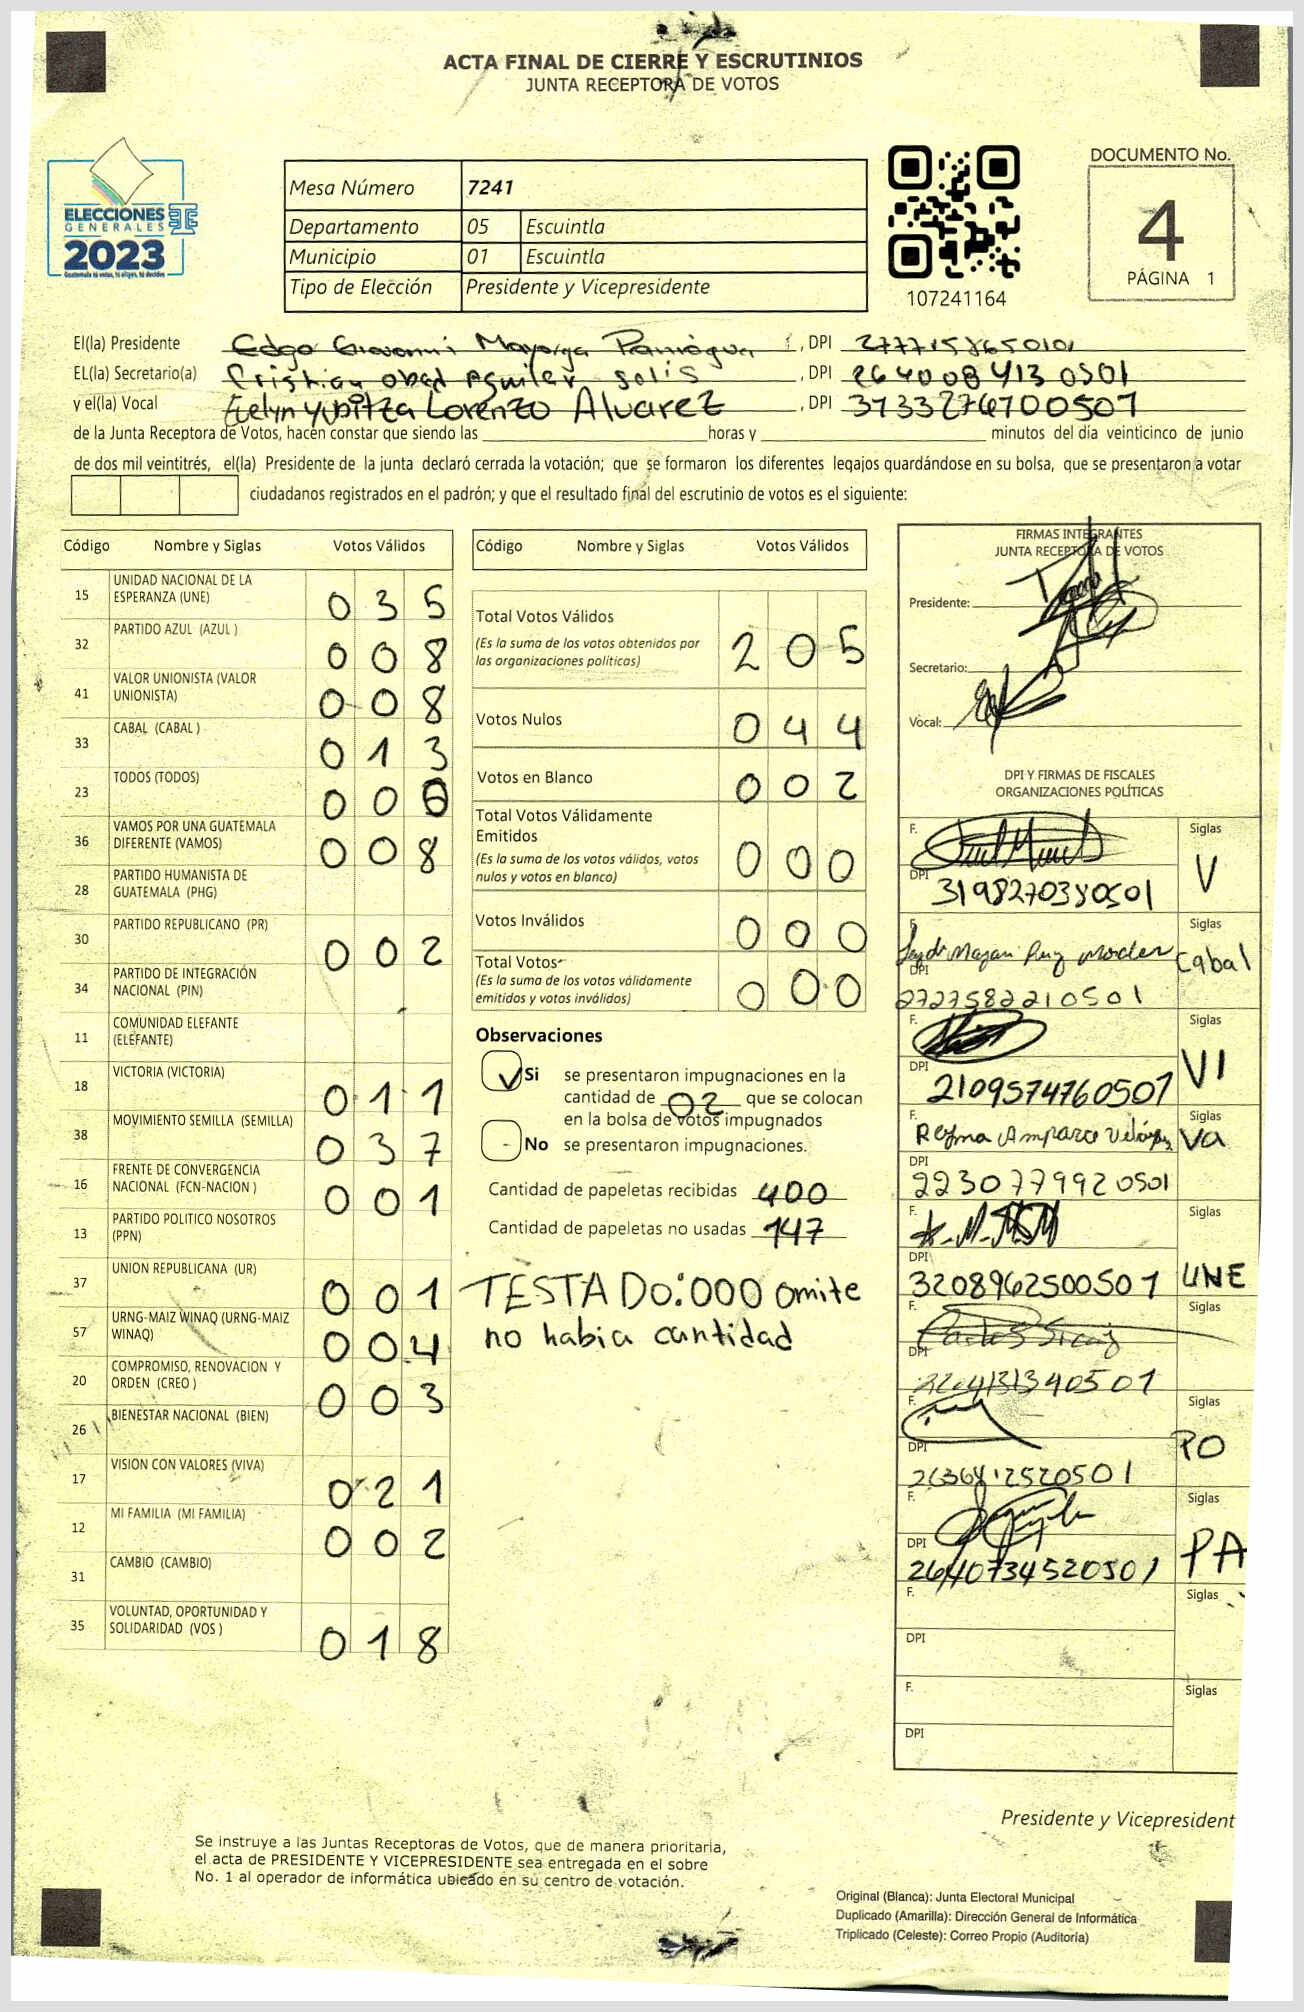 ACTA FINAL DE CIERRE Y ESCRUTINIOS
JUNTA RECEPTORA DE VOTOS
ELECCIONES
GENERALES
2023
Guatemala tú votas, tú eliges, tú decides
Mesa Número 7241
Departamento 05 Escuintla
Municipio 01 Escuintla
Tipo de Elección Presidente y Vicepresidente
107241164
DOCUMENTO No.
4
PÁGINA 1
El(la) Presidente Edgo Giovanni Mayorga Paniagua, DPI
EL(la) Secretario(a) Cristian Obed Aguilar Solis, DPI 2640084130501
y el(la) Vocal Evelyn Yubitza Lorenzo Alvarez, DPI 3733276700501
de la Junta Receptora de Votos, hacen constar que siendo las horas y minutos del día veinticinco de junio
de dos mil veintitrés, el(la) Presidente de la junta declaró cerrada la votación; que se formaron los diferentes legajos guardándose en su bolsa, que se presentaron a votar
ciudadanos registrados en el padrón; y que el resultado final del escrutinio de votos es el siguiente:
Código Nombre y Siglas Votos Válidos
15 UNIDAD NACIONAL DE LA ESPERANZA (UNE) 035
32 PARTIDO AZUL (AZUL ) 008
41 VALOR UNIONISTA (VALOR UNIONISTA) 008
33 CABAL (CABAL ) 013
23 TODOS (TODOS) 00
36 VAMOS POR UNA GUATEMALA DIFERENTE (VAMOS) 008
28 PARTIDO HUMANISTA DE GUATEMALA (PHG)
30 PARTIDO REPUBLICANO (PR) 002
34 PARTIDO DE INTEGRACIÓN NACIONAL (PIN)
11 COMUNIDAD ELEFANTE (ELEFANTE)
18 VICTORIA (VICTORIA) 011
38 MOVIMIENTO SEMILLA (SEMILLA) 037
16 FRENTE DE CONVERGENCIA NACIONAL (FCN-NACION ) 001
13 PARTIDO POLITICO NOSOTROS (PPN)
37 UNION REPUBLICANA (UR) 001
57 URNG-MAIZ WINAQ (URNG-MAIZ WINAQ) 004
20 COMPROMISO, RENOVACION Y ORDEN (CREO ) 003
26 BIENESTAR NACIONAL (BIEN)
17 VISION CON VALORES (VIVA) 021
12 MI FAMILIA (MI FAMILIA) 002
31 CAMBIO (CAMBIO)
35 VOLUNTAD, OPORTUNIDAD Y SOLIDARIDAD (VOS ) 018
Código Nombre y Siglas Votos Válidos
Total Votos Válidos 205
(Es la suma de los votos obtenidos por
las organizaciones políticas)
Votos Nulos 044
Votos en Blanco 002
Total Votos Válidamente
Emitidos 000
(Es la suma de los votos válidos, votos
nulos y votos en blanco)
Votos Inválidos 000
Total Votos 000
(Es la suma de los votos válidamente
emitidos y votos inválidos)
Observaciones
Si se presentaron impugnaciones en la
cantidad de 02 que se colocan
en la bolsa de votos impugnados
No se presentaron impugnaciones.
Cantidad de papeletas recibidas 400
Cantidad de papeletas no usadas 147
TESTADO:000 omite
no habia cantidad
FIRMAS INTEGRANTES
JUNTA RECEPTORA DE VOTOS
Presidente:
Secretario:
Vocal:
DPI Y FIRMAS DE FISCALES
ORGANIZACIONES POLÍTICAS
F. Siglas V
DPI 3198270380501
F. Siglas Cabal
DPI 2727582210501
F. Siglas VI
DPI 2109574760501
F. Reyna Amparo Siglas Va
DPI 2230779920501
F. Siglas UNE
DPI 3208962500501
F. Siglas
DPI
F. Siglas PO
DPI
F. Siglas PA
DPI 2640734520501
F. Siglas
DPI
F. Siglas
DPI
Presidente y Vicepresident
Se instruye a las Juntas Receptoras de Votos, que de manera prioritaria,
el acta de PRESIDENTE Y VICEPRESIDENTE sea entregada en el sobre
No. 1 al operador de informática ubicado en su centro de votación.
Original (Blanca): Junta Electoral Municipal
Duplicado (Amarilla): Dirección General de Informática
Triplicado (Celeste): Correo Propio (Auditoría)